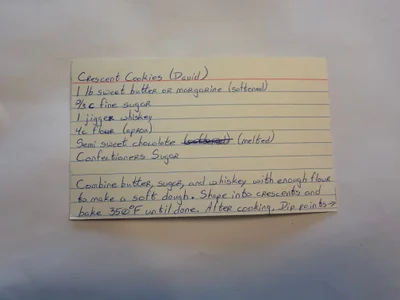 Crescent Cookies (David)
1 lb sweet butter or margarine (softened)
3/4 c fine sugar
1 jigger whiskey
4c flour (aprox)
Semi sweet chocolate (melted)
Confectioners Sugar
Combine butter, sugar, and whiskey with enough flour
to make a soft dough. Shape into crescents and
bake 350°F until done. After cooking, Dip points →